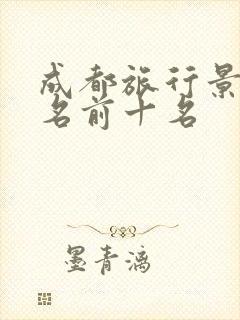 成都旅行景
名前十名
墨青漓